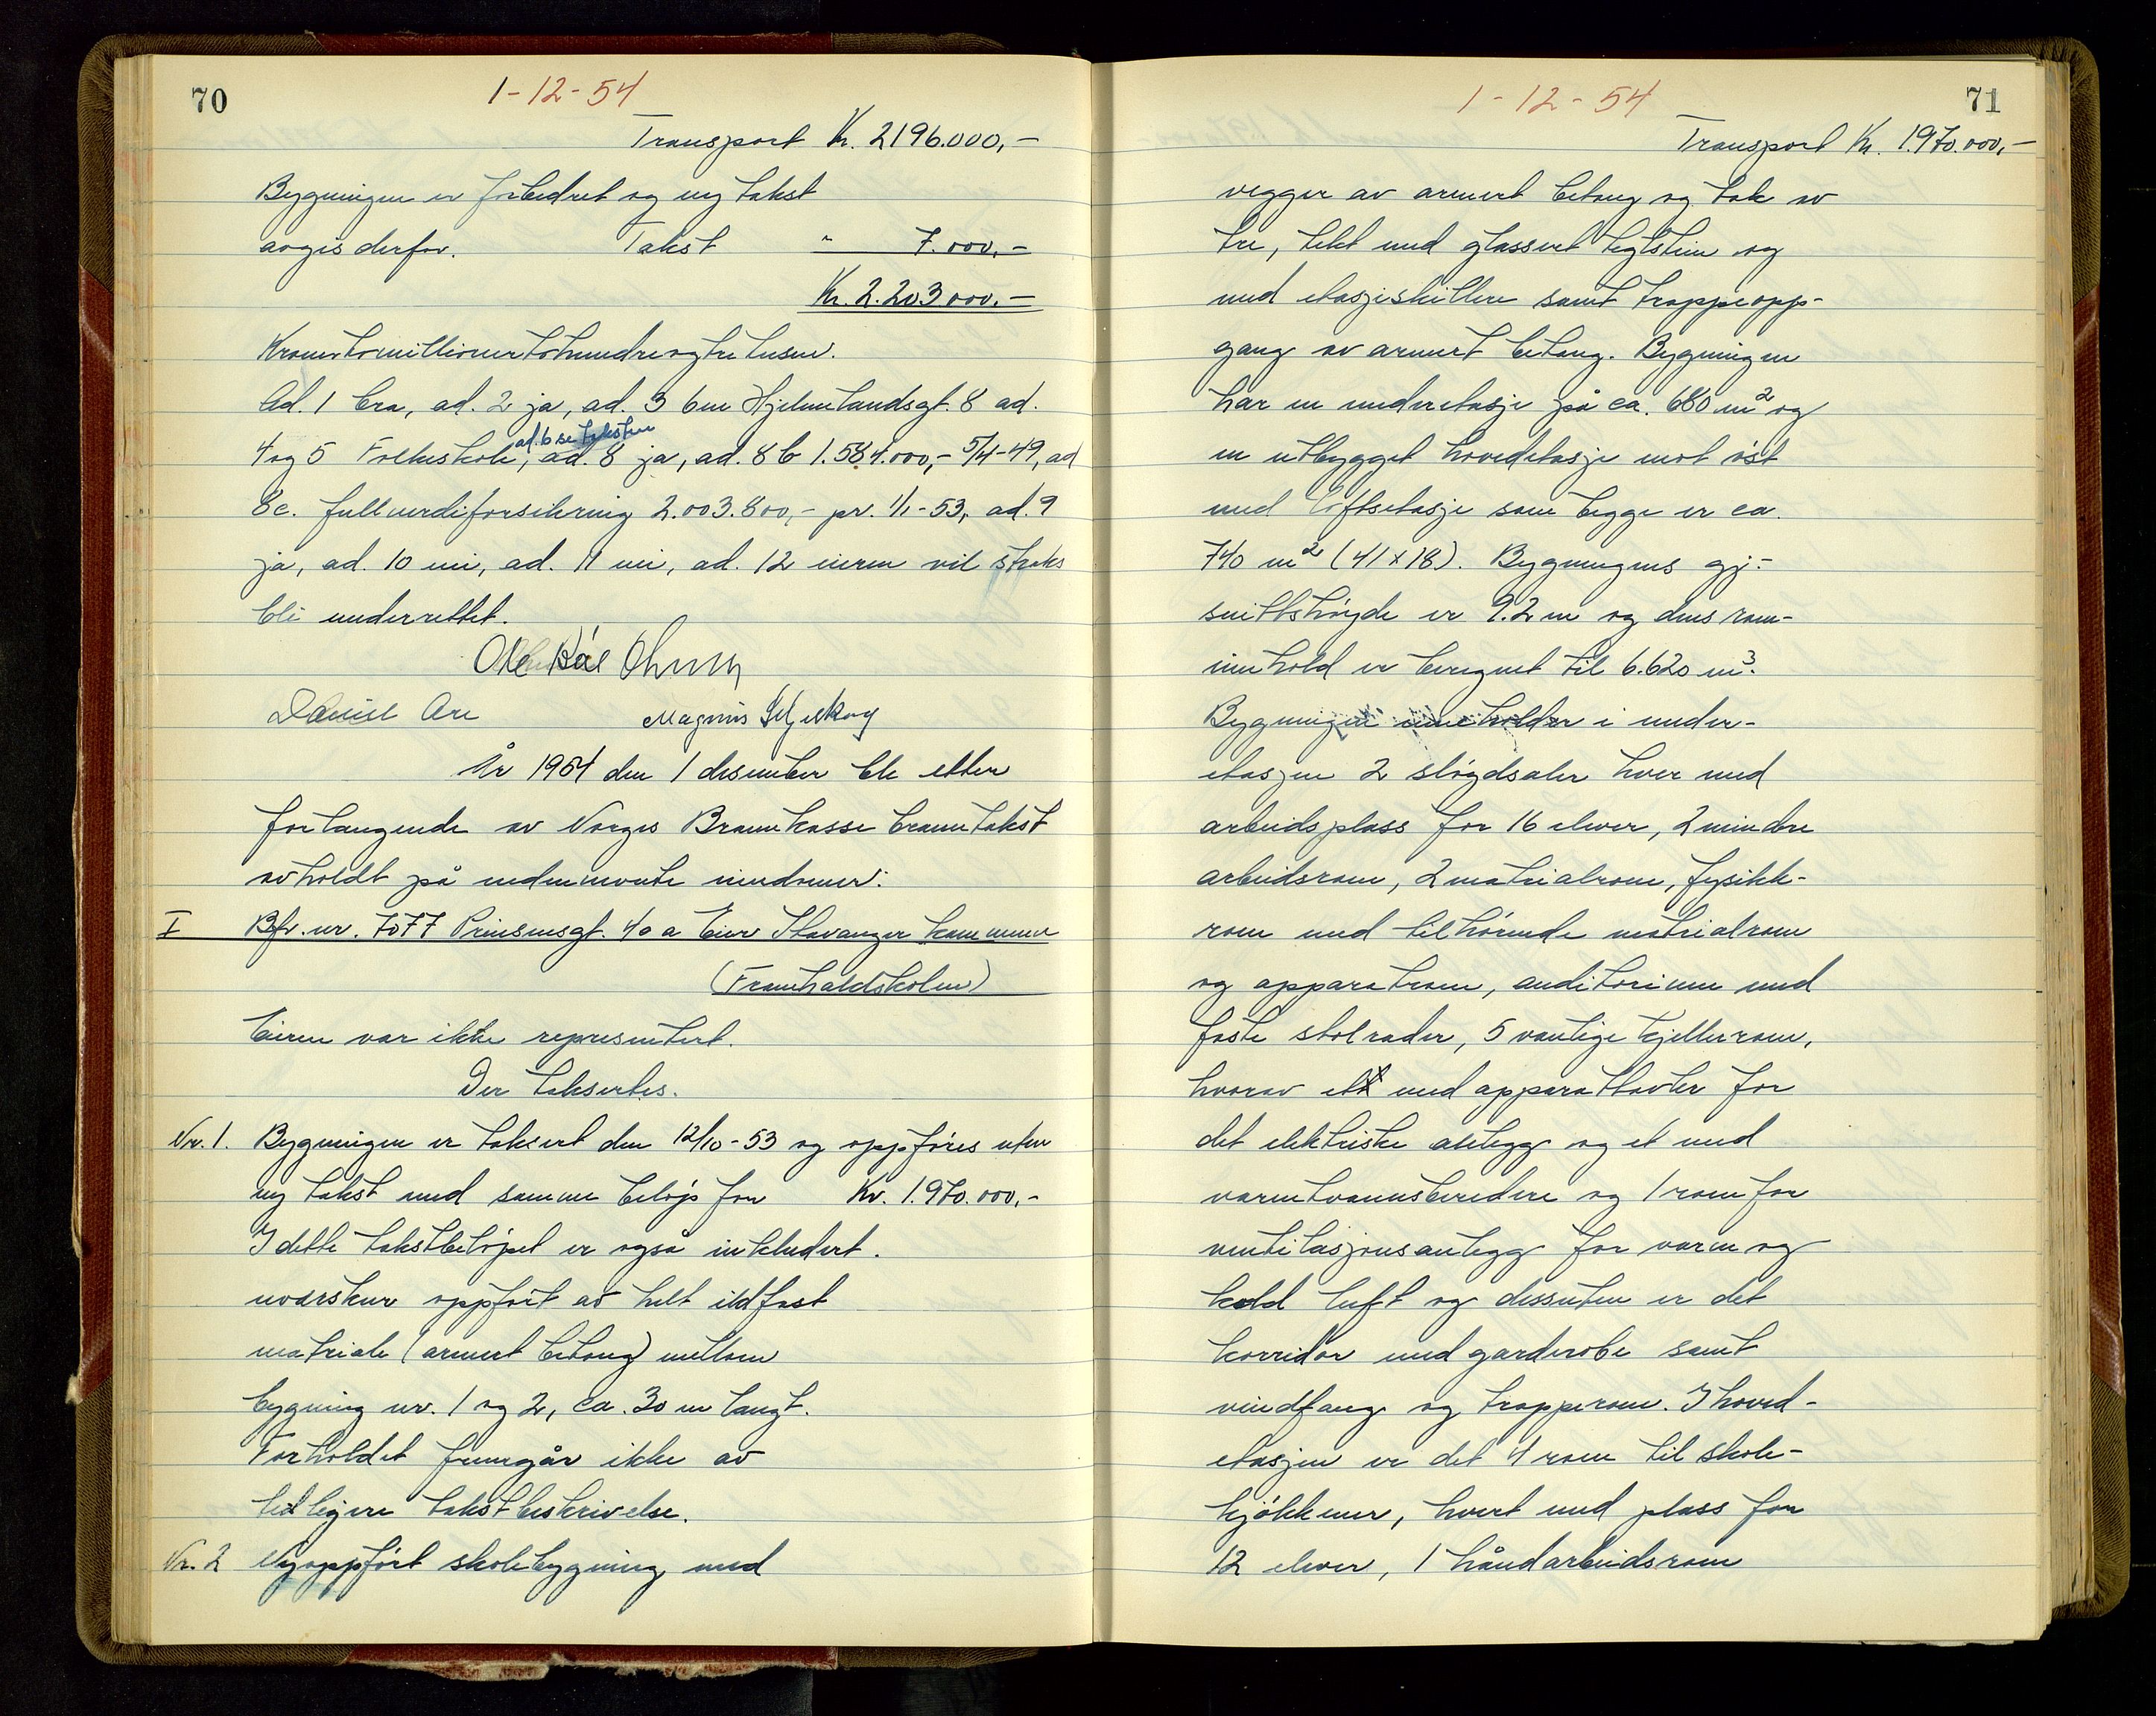 70
1-12-54
Transport Kr. 2196.000,-
Bygningen er forbedret og ny takst
avgis derfor. Takst " 7.000,-
Kr. 2.203 000.-
Kroner tomillionertohundreogtre tusen.
Ad. 1 bra, ad. 2 ja, ad. 3 6m Hjelmelandsgt. 8 ad.
ad. 6 se taksten
4 og 5 Folkeskole, ad. 8 ja, ad. 8 b 1.584.000,- 5/4-49, ad
8c. fullverdiforsikring 2.003.800,- pr. 1/1-53, ad. 9
ja, ad. 10 nei, ad. 11 nei, ad. 12 eieren vil straks
bli underrettet.
Daniel Magnus
År 1954 den 1 desember ble etter
forlangende av Norges Brannkasse branntakst
avholdt på nedennevnte eiendomer:
I Bfr. nr. 7077 Prinsensgt. 40 a Eier Stavanger kommune
(Framhaldskolen)
Eieren var ikke representert.
Der taksertes.
Nr. 1. Bygningen er taksert den 12/10-53 og oppføres uten
ny takst med samme beløp før Kr. 1.970.000,-
I dette takstbeløpet er også inkludert.
uværskur oppført av helt ildfast
matriale (armert betong) mellom
bygning nr. 1 og 2, ca. 30 m langt.
Forholdet fremgår ikke av
tidligere takstbeskrivelse.
Nr. 2 Nyoppført skolebygning med
1-12-54
71
Transport Kr. 1.970.000,-
vegger av armert betong og tak av
tre, tekt med glassert teglstein og
med etasjeskillere samt trappeopp-
gang av armert betong. Bygningen
har en underetasje på ca. 680 m² og
en utbygget hovedetasje mot øst
med loftsetasje som begge er ca.
740 m² (41 x 18). Bygningens gj.-
snittshøyde er 9.2 m og dens rom-
innhold er beregnet til 6.620 m³.
Bygningen inneholder i under-
etasjen 2 sløydsaler hver med
arbeidsplass for 16 elever, 2 mindre
arbeidsrom, 2 matrialrom, fysikk-
rom med tilhørende matrialrom
og apparatrom, auditorium med
faste stolrader, 5 vanlige kjellerrom,
hvorav et med apparattavler for
det elektriske anlegg og et med
varmtvannsberedere og 1 rom for
ventilasjonsanlegg for varm og
kald luft og dessuten er det
korridor med garderobe samt
vindfang og trapperom. I hoved-
etasjen er det 4 rom til skole-
kjøkkener, hvert med plass for
12 elever, 1 håndarbeidsrom